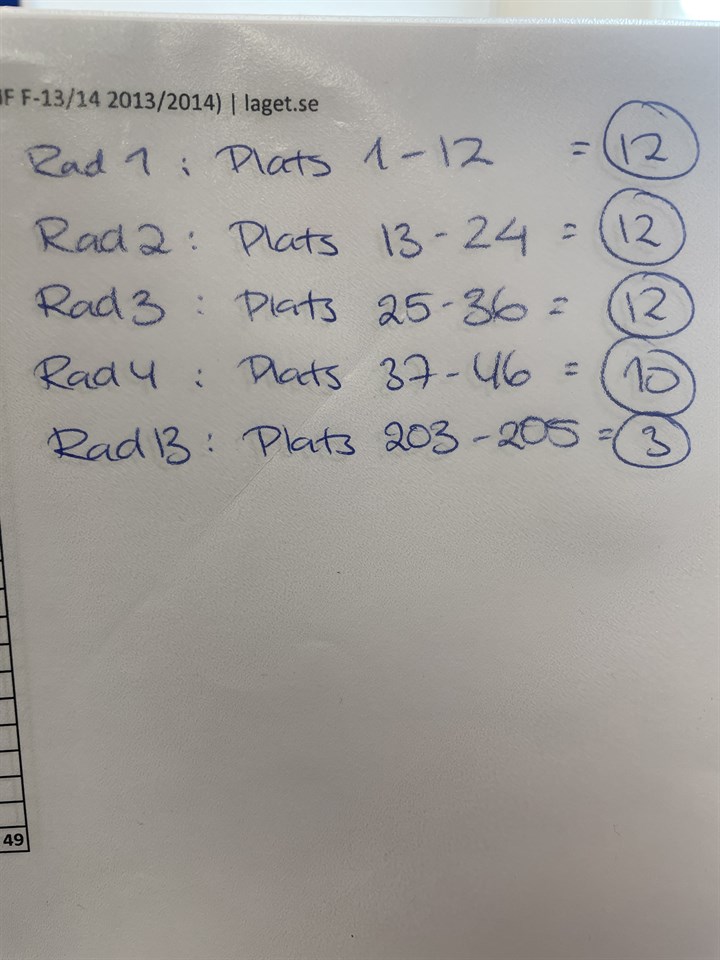 F F-13/14 2013/2014) | laget.se
Rad 1 : Plats 1-12 = 12
Rad 2 : Plats 13-24 = 12
Rad 3 : Plats 25-36 = 12
Rad 4 : Plats 37-46 = 10
Rad 13 : Plats 203-205 = 3
49